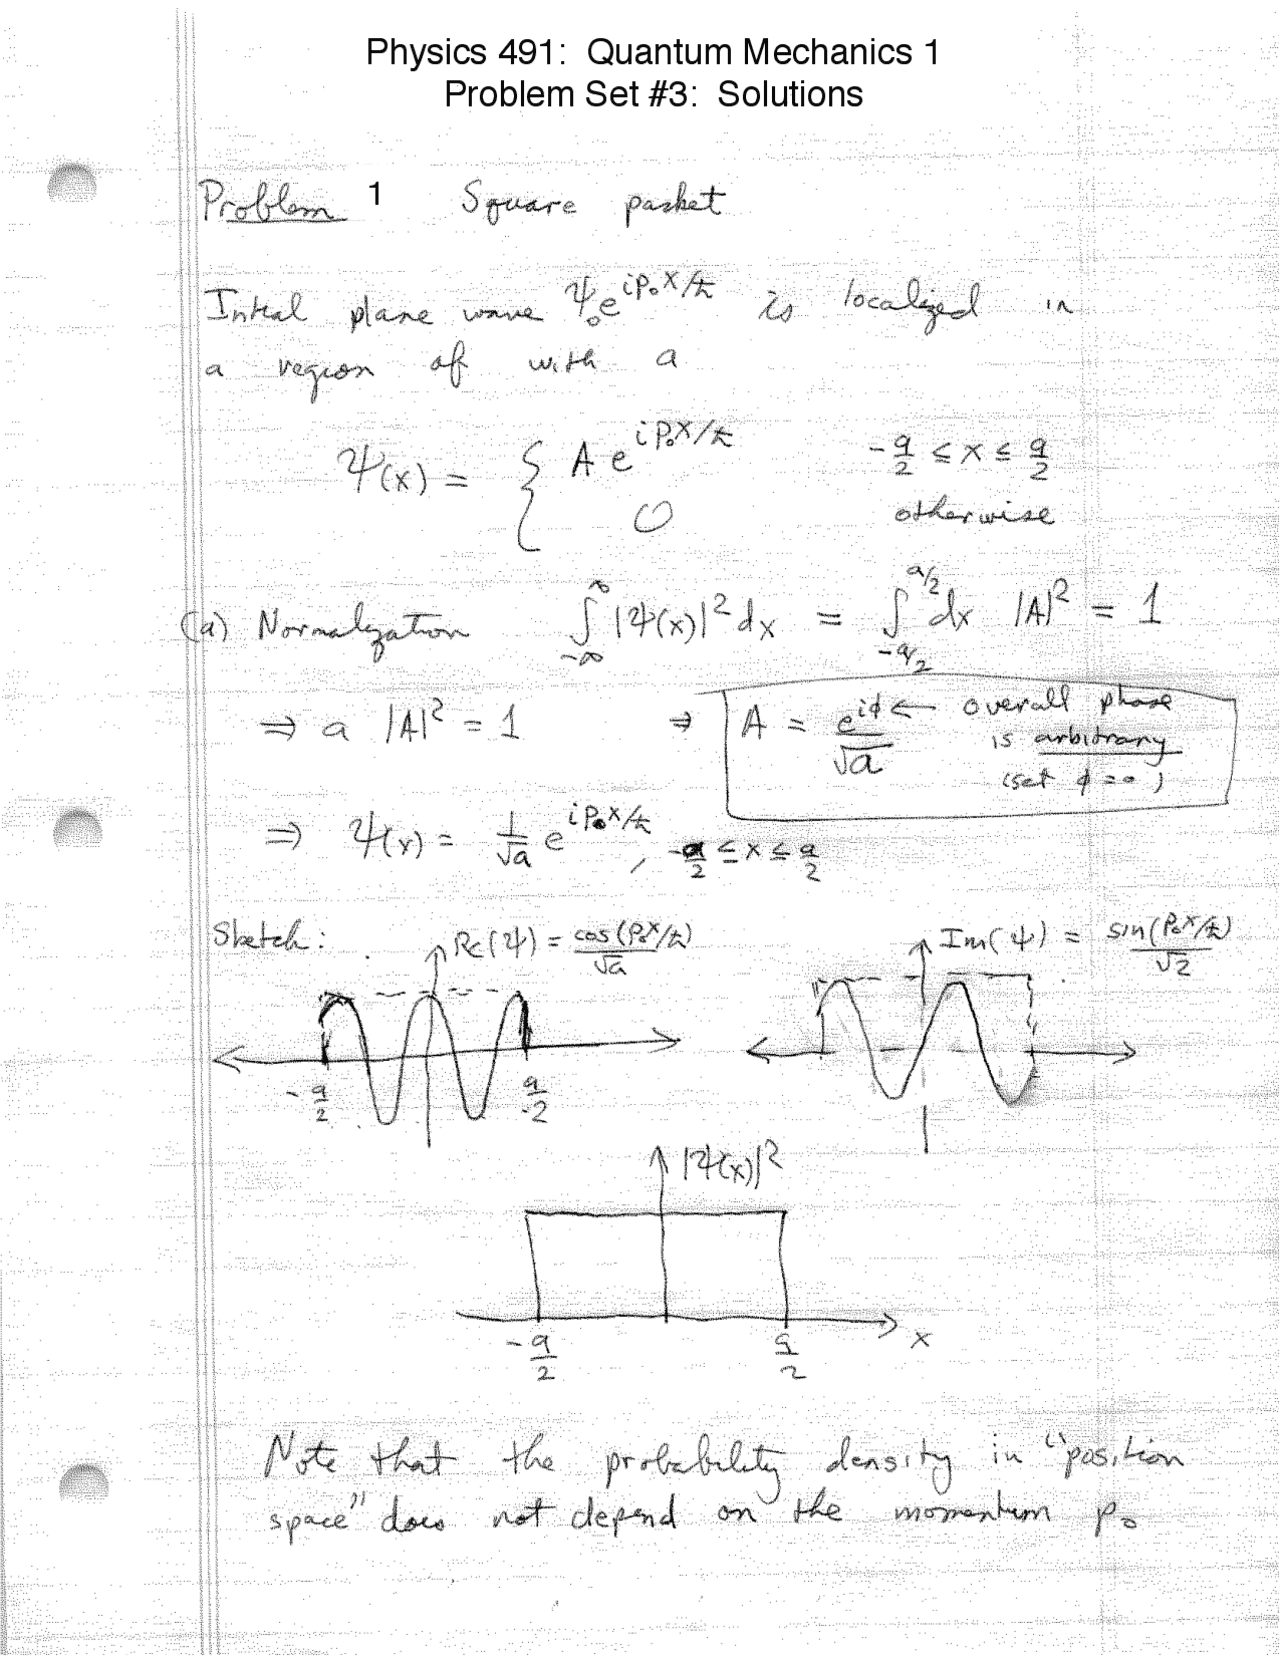 Physics 491: Quantum Mechanics 1
Problem Set #3: Solutions
Problem 1 Square packet
Inital plane wave ψ₀e^{ip₀x/ℏ} is localized in
a region of with a
ψ(x) = { A e^{ip₀x/ℏ} -a/2 ≤ x ≤ a/2
0 otherwise
(a) Normalization ∫_{-∞}^{∞} |ψ(x)|² dx = ∫_{-a/2}^{a/2} dx |A|² = 1
⇒ a |A|² = 1 ⇒ A = e^{iϕ}/√a ← overall phase
is arbitrary
(set ϕ = 0)
⇒ ψ(x) = 1/√a e^{ip₀x/ℏ}, -a/2 ≤ x ≤ a/2
Sketch: Re(ψ) = cos(p₀x/ℏ)/√a Im(ψ) = sin(p₀x/ℏ)/√2
-a/2 a/2
|ψ(x)|²
-a/2 a/2 x
Note that the probability density in "position
space" does not depend on the momentum p₀